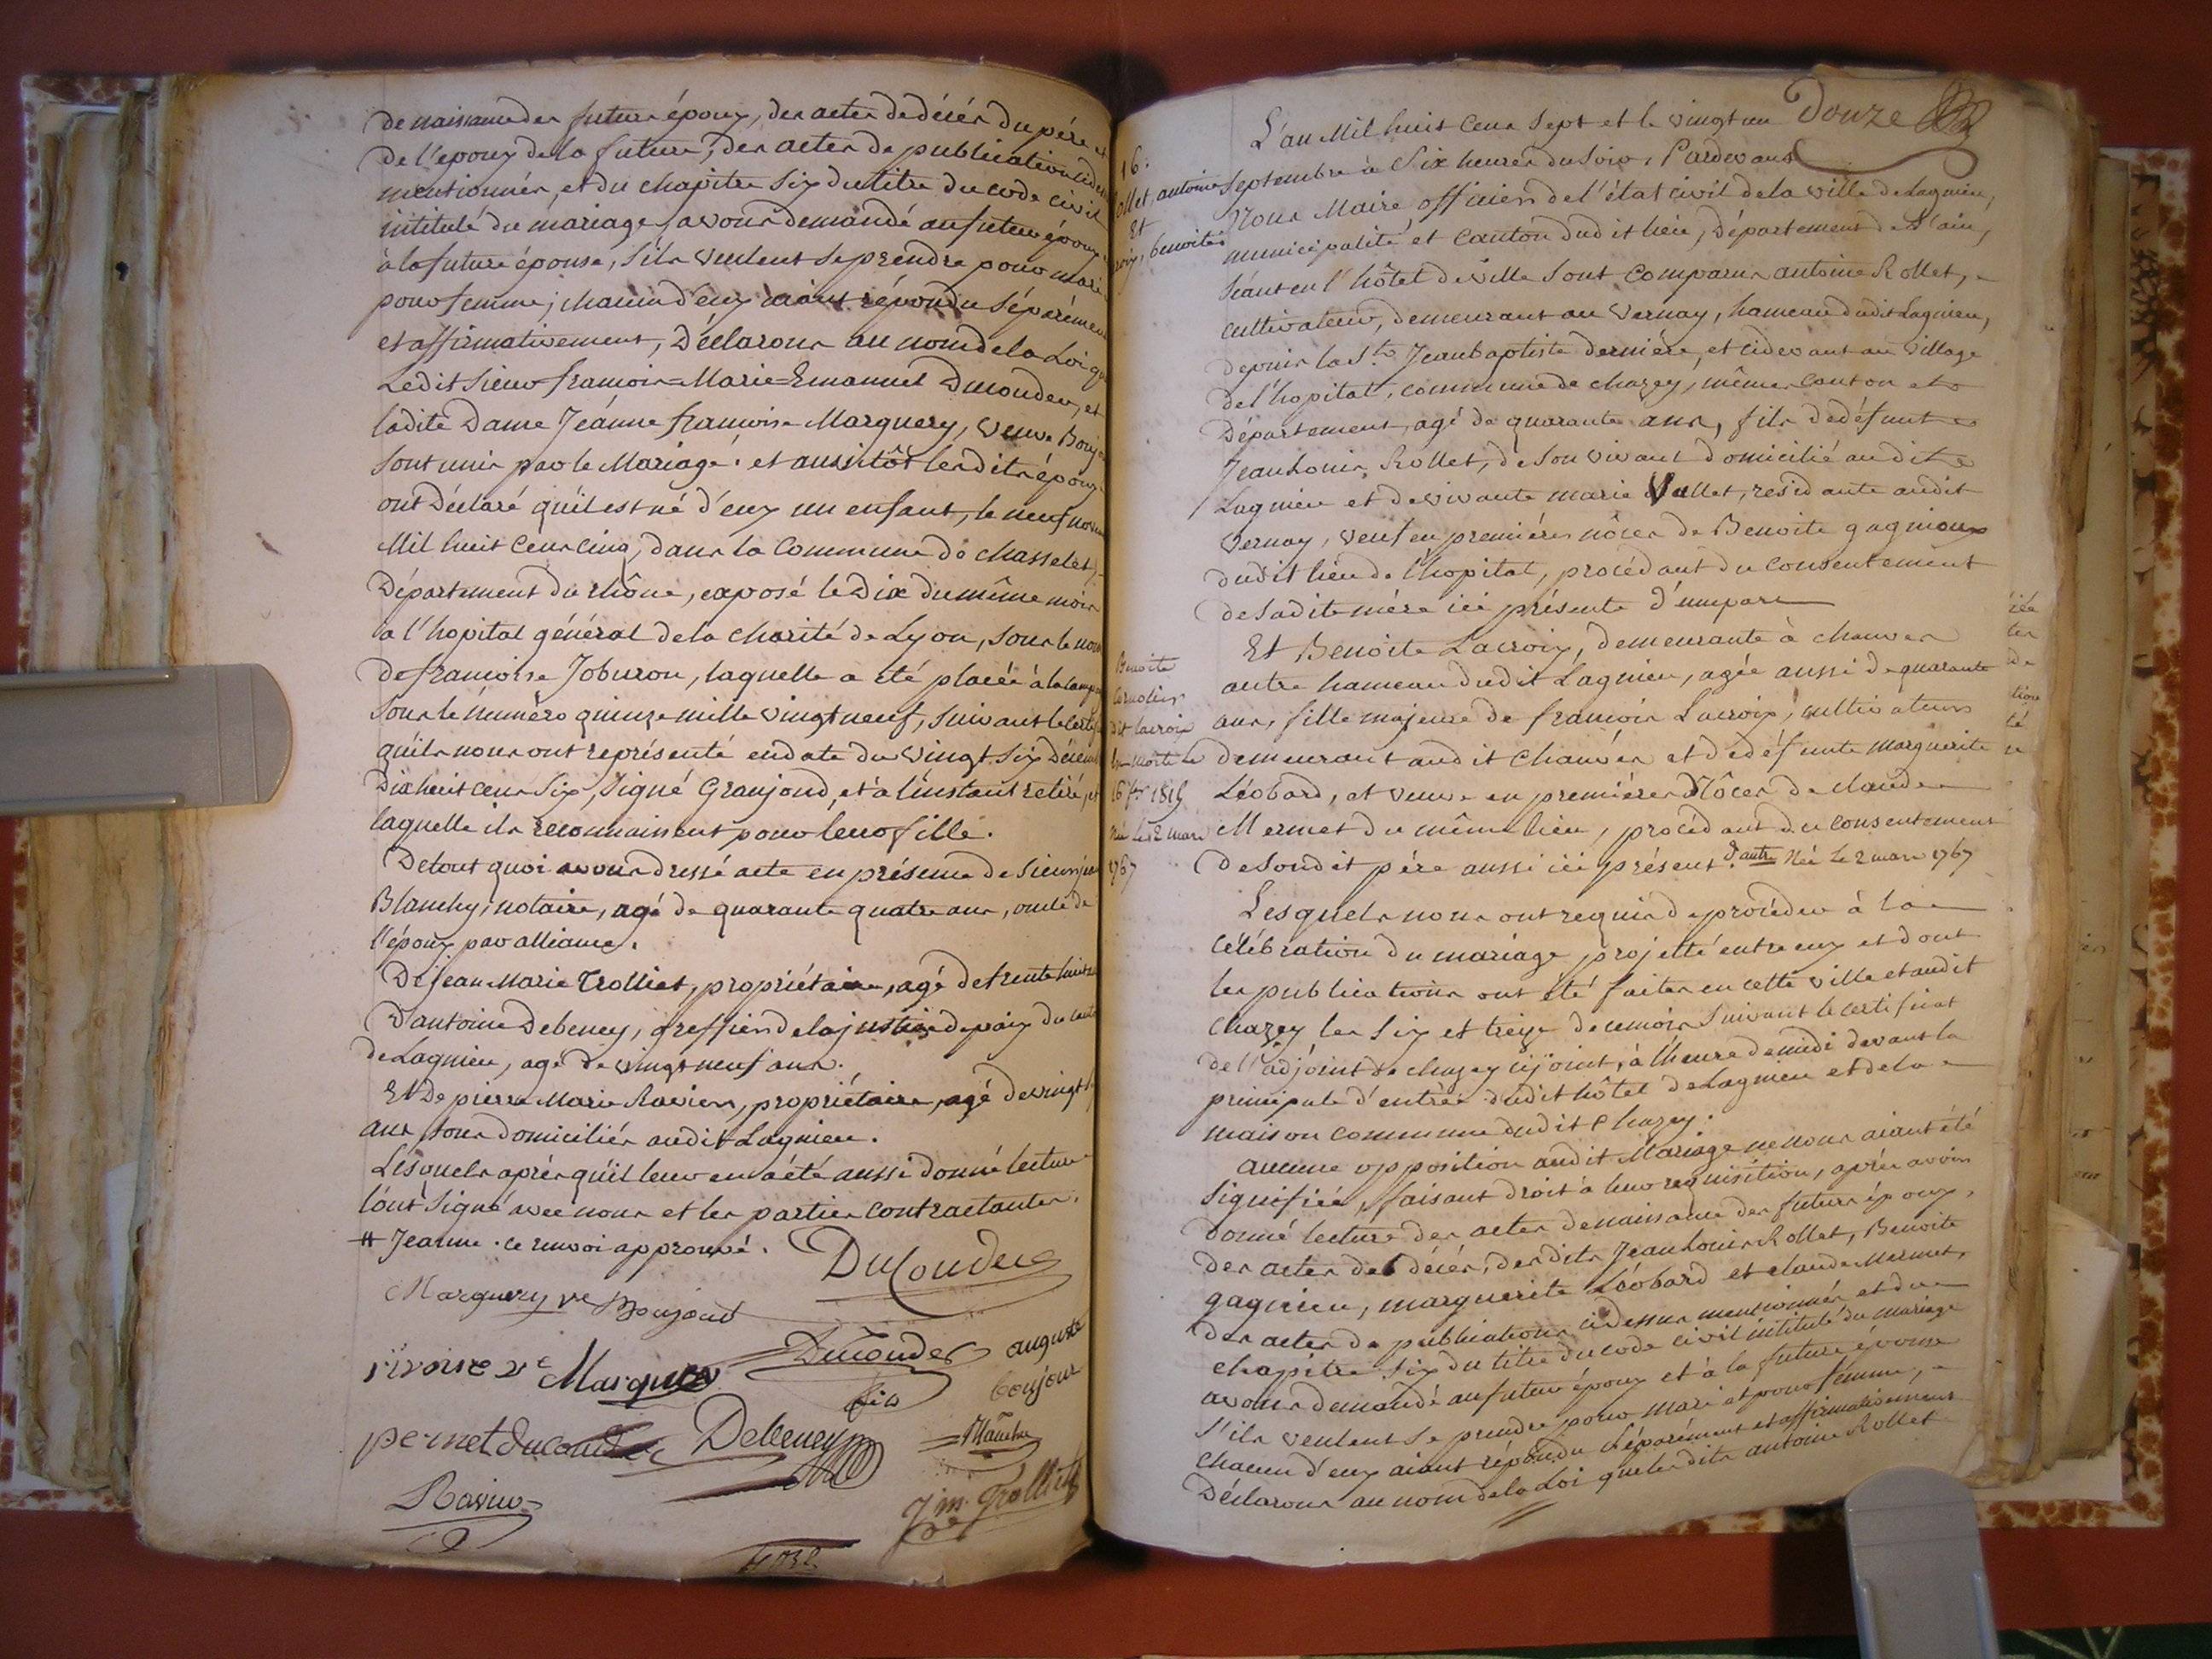 de naissance des futurs époux, des actes de décès du père et
de l'epoux de la future, des actes de publication cidessus
mentionnés, et du chapitre six du titre du code civil
intitulé du mariage, avons demandé au futur époux
à la future épouse, s'ils veulent se prendre pour mari
pour femme; chacun d'eux aiant répondu séparément
et affirmativement, Déclarons au nom de la Loi que
Ledit sieur francois=Marie=Emanuel Ducouder, et
ladite Dame Jeánne francoise Marguery, veuve Boujou
sont unis par le Mariage. et aussitôt lesdits époux
ont Déclaré qu'il est né d'eux un enfant, le neuf nov
Mil huit Cens cinq, dans la Commune de chasselet,
Département du rhône, exposé le Dix du même mois
à l'hopital général de la charité de Lyon, sous le nom
de francoise Joburon, laquelle a été placée à la
sous le numèro quinze mille vingt neuf, suivant le certif
qu'ils nous ont représenté en date du vingt six Décemb
Dix huit cens six, signé Granjond, et à l'instant retiré, et
laquelle ils reconnaissent pour leur fille.
De tout quoi avons dressé acte en présence de sieur jean
Blanchy, notaire, agé de quarante quatre ans, oncle de
l'époux par alliance.
De jean Marie Trolliet, propriétaire, agé de trente huit ans
D'antoine Debeney, greffier de la justice de paix du canton
de Lagnieu, agé de vingt neuf ans.
Et De pierre Marie Ravier, propriétaire, agé de vingt
ans, tous domiciliés audit Lagnieu.
Lesquels après qu'il leur en a été aussi donné lecture
l'ont signé avec nous et les parties contractantes.
# Jeanne. ce renvoi approuvé. DuCouder
Marguery ve Boujout
rivoire ve Marguery Ducouder fils auguste boujour
pernet ducouder Debeney Blanchy
Ravier J m. Trolliet
Douze
L'an Mil huit Cens sept et le vingt un
septembre à Six heures du soir, Pardevant
Nous Maire officier de l'état civil de la ville de Lagnieu,
municipalité et Canton dudit lieu, Département de l'ain,
séant en l'hôtel de ville sont Comparus antoine Rollet,
cultivateur, demeurant au Vernay, hameau dudit Lagnieu,
depuis la St. Jeanbaptiste dernière, et cidevant au village
de l'hopital, commune de chazey, même canton et
Département, agé de quarante ans, fils de défunt
Jean Louis Rollet, de son vivant domicilié audit
Lagnieu et de vivante marie Vallet, residante audit
Vernay, veuf en premières nôces de Benoite gagnieux
dudit lieu de l'hopital, procédant du consentement
de sadite mère ici présente d'une part
Et Benoite Lacroix, demeurante à chanves
autre hameau dudit Lagnieu, agée aussi de quarante
ans, fille majeure de francois Lacroix, cultivateur
demeurant audit Chanves et de défunte marguerite
Léobard, et veuve en premières Nôces de claude
Mermet du même lieu, procédant du consentement
de sondit père aussi ici présent. d'autre Née Le 2 mars 1767
Lesquels nous ont requis de procéder à la
Célébration du mariage projetté entre eux et dont
les publications ont été faites en cette ville et audit
Chazey les six et treize de ce mois suivant le certificat
de l'adjoint de chazey ci joint, à l'heure de midi devant la
principale d'entrée dudit hôtel de Lagnieu et de la
maison commune dudit Chazey.
aucune opposition audit Mariage ne nous aiant été
signifiée, faisant droit à leur requisition, après avoir
donné lecture des actes de naissance des futurs époux,
des actes de décès, desdits Jean Louis Rollet, Benoite
gagnieu, marguerite Léobard et claude Mermet,
des actes de publications cidessus mentionnés, et du
chapitre six du titre du code civil intitulé du mariage
avons demandé au futur époux et à la future épouse
s'ils veulent se prendre pour mari et pour femme,
chacun d'eux aiant répondu séparément et affirmativement
Déclarons au nom de la Loi que lesdits antoine Rollet
16.
ollet, antoine
Et
roix, benoite
Benoite
dit lacroix
morte le
16 7bre 1815
née le 2 mars
1767